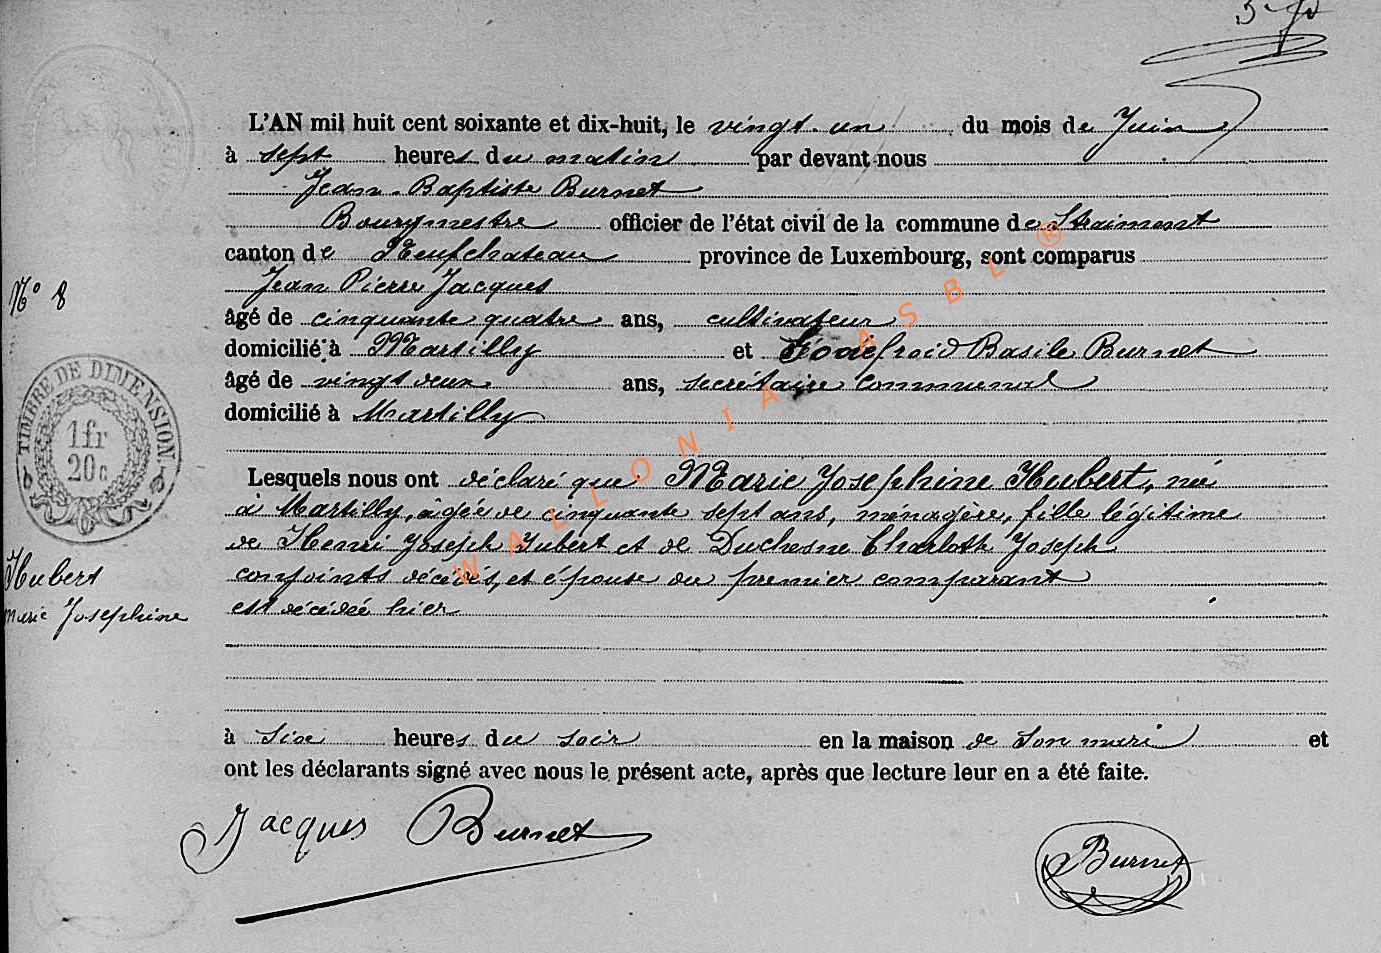 L'AN mil huit cent soixante et dix-huit, le vingt-un du mois de Juin
à sept heures du matin par devant nous
Jean-Baptiste Burnet
Bourgmestre officier de l'état civil de la commune de Straimont
canton de Neufchateau province de Luxembourg, sont comparus
N° 8
Jean Pierre Jacques
âgé de cinquante quatre ans, cultivateur
domicilié à Martilly et Godefroid Basile Burnet
âgé de vingt deux ans, secrétaire communal
domicilié à Martilly
TIMBRE DE DIMENSION
1 fr
20 c
Lesquels nous ont déclaré que Marie Josephine Hubert, née
à Martilly, âgée de cinquante sept ans, ménagère, fille légitime
de Henri Joseph Hubert et de Duchesne Charlotte Joseph
conjoints décédés, et épouse du premier comparant
est décédée hier
Hubert
Marie Josephine
à six heures du soir en la maison de son mari et
ont les déclarants signé avec nous le présent acte, après que lecture leur en a été faite.
Jacques Burnet Burnet
WALLONIA ASBL ®